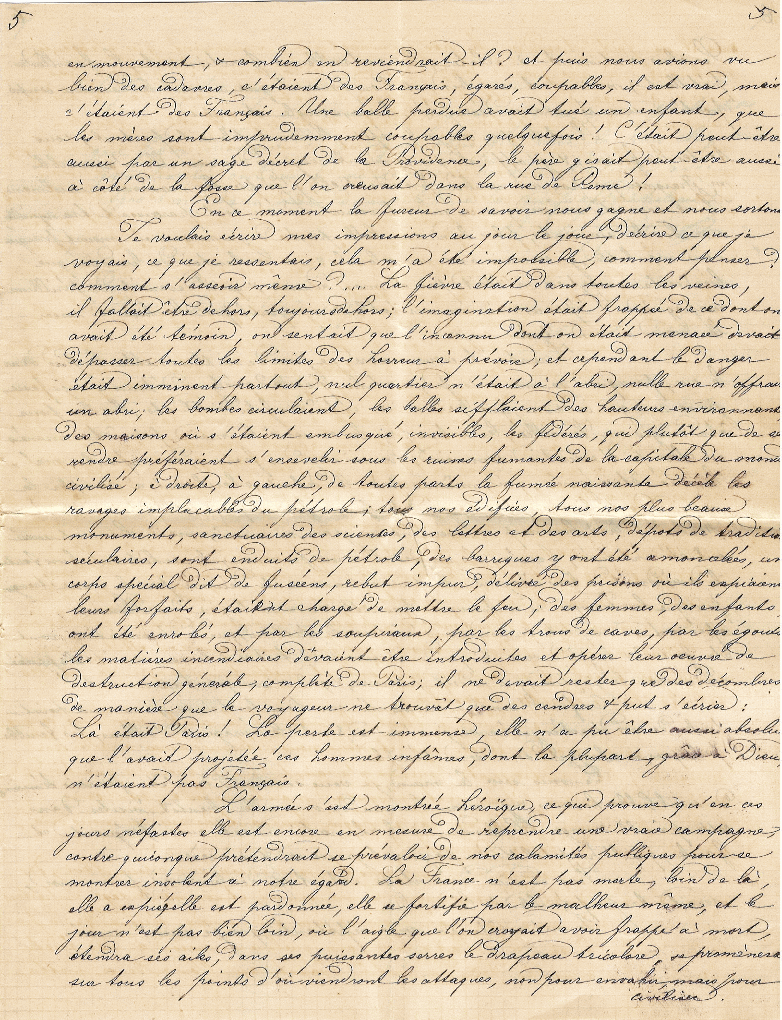 5 5
en mouvement, & combien en reviendrait-il ? et puis nous avions vu
bien des cadavres, c'étaient des Français, égarés, coupables, il est vrai, mais
c'étaient des Français. Une balle perdue avait tué un enfant, que
les mères sont imprudemment coupables quelquefois ! C'était peut-être
aussi par un sage décret de la Providence, le père gisait peut-être aussi
à côté de la fosse que l'on creusait dans la rue de Rome !
En ce moment la fureur de savoir nous gagne et nous sortons
Je voulais écrire mes impressions au jour le jour, décrire ce que je
voyais, ce que je ressentais, cela m'a été impossible, comment penser ?
comment s'asseoir même ?.... La fièvre était dans toutes les veines,
il fallait être dehors, toujours dehors ; l'imagination était frappée de ce dont on
avait été témoin, on sentait que l'inconnu dont on était menacé devait
dépasser toutes les limites des horreur à prévoir ; et cependant le danger
était imminent partout, nul quartier n'était à l'abri, nulle rue n'offrait
un abri ; les bombes circulaient, les balles sifflaient des hauteurs environnantes
des maisons où s'étaient embusqué, invisibles, les fédérés, qui plutôt que de se
rendre préféraient s'ensevelir sous les ruines fumantes de la capitale du monde
civilisé ; à droite, à gauche, de toutes parts la fumée naissante décèle les
ravages implacables du pétrole ; tous nos édifices, tous nos plus beaux
monuments, sanctuaires des sciences, des lettres et des arts, dépots de traditions
séculaires, sont enduits de pétrole, des barriques y ont été amoncelées, un
corps spécial dit de fuséens, rebut impur, délivré des prisons où ils expiaient
leurs forfaits, étaient chargé de mettre le feu ; des femmes, des enfants
ont été enrolés, et par les soupiraux, par les trous de caves, par les égouts
les matières incendiaires devaient être introduites et opérer leur oeuvre de
destruction générale, complète de Paris ; il ne devait rester que des décombres
de manière que le voyageur ne trouvât que des cendres & put s'écrier :
Là était Paris ! La perte est immense, elle n'a pu être aussi absolue
que l'avait projetée ces hommes infâmes, dont la plupart, grâce à Dieu
n'étaient pas Français.
L'armée s'est montrée héroïque, ce qui prouve qu'en ces
jours néfastes elle est encore en mesure de reprendre une vraie campagne,
contre quiconque prétendrait se prévaloir de nos calamités publiques pour se
montrer insolent à notre égard. La France n'est pas morte, loin de là,
elle a expié, elle est pardonnée, elle se fortifie par le malheur même, et le
jour n'est pas bien loin, où l'aigle que l'on croyait avoir frappé à mort,
étendra ses ailes, dans ses puissantes serres le drapeau tricolore, se promènera
sur tous les points d'où viendront les attaques, non pour envahir mais pour
civiliser.